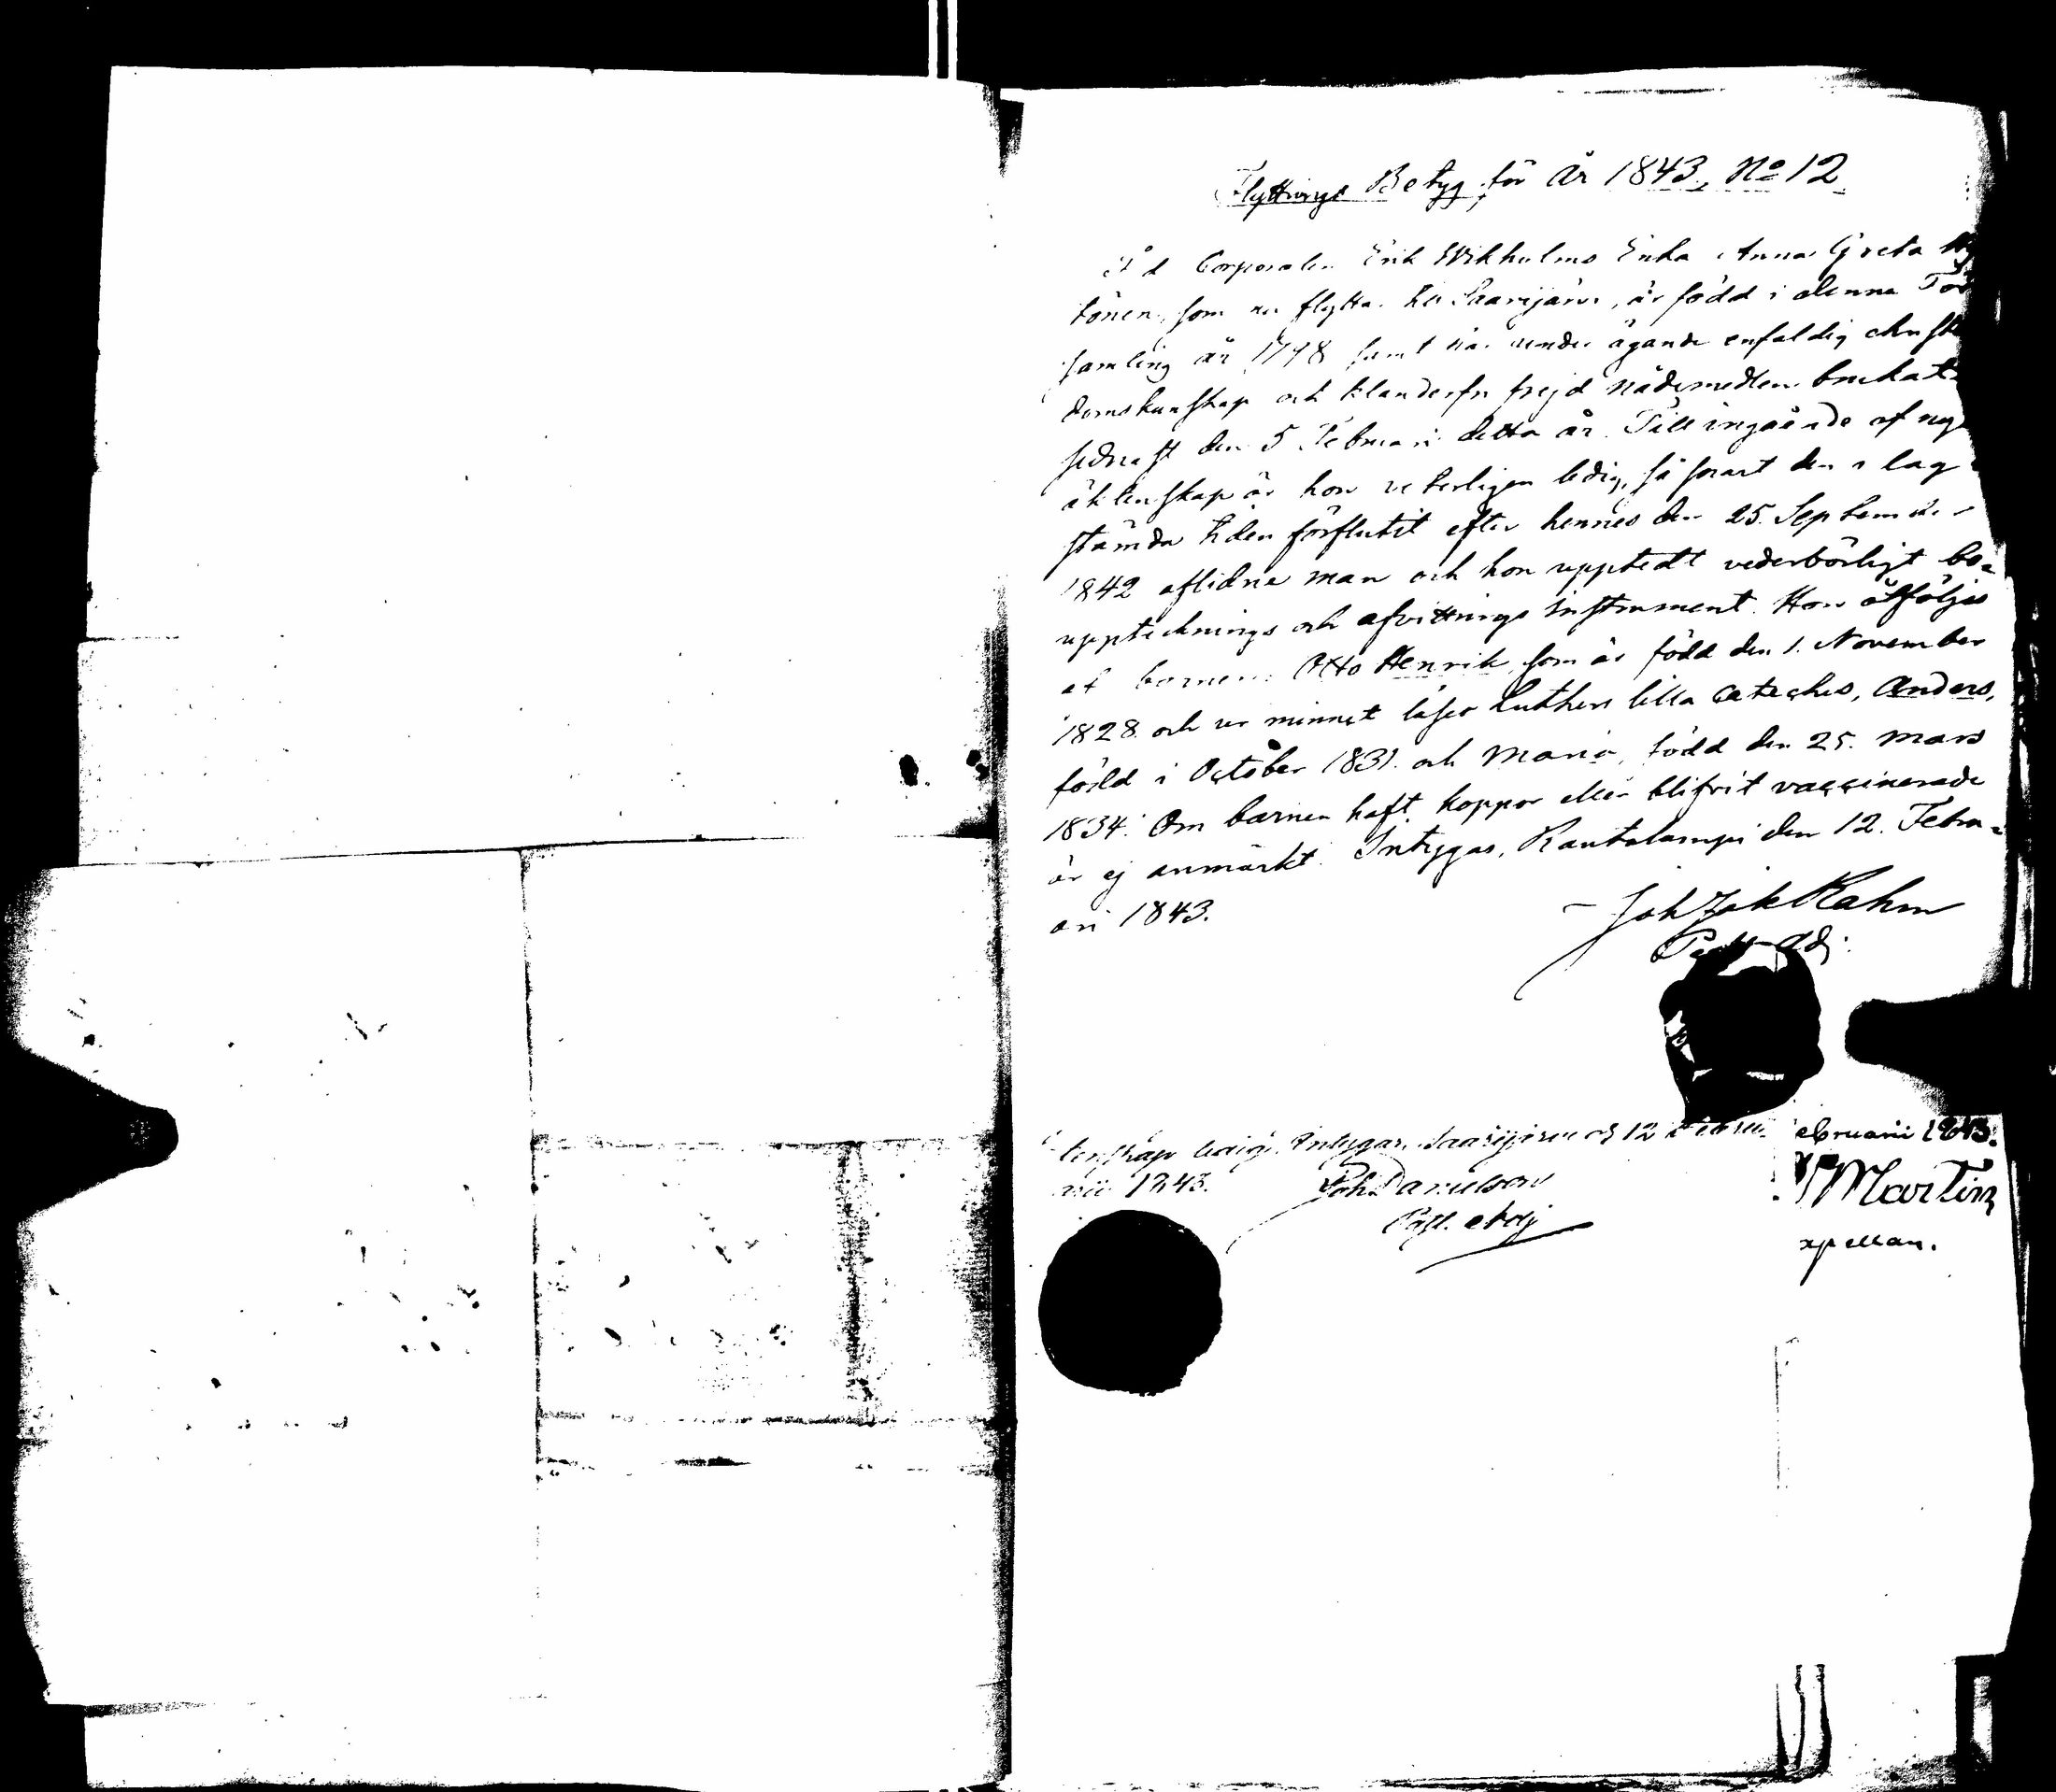 Flyttnings Betyg för År 1843, No 12
Corporalen Erik Wikholms Enka Anna Greta
tönen, som nu flyttar till Saarijärvi, är född i denna För
samling år 1798 samt har under ägande enfaldig christen
domskunskap och klanderfri frejd nådemedlen brukat
sednast den 5 Februari detta år. Till ingående af nytt
äktenskap är hon veterligen ledig, så snart den i lag
stämda tiden förflutit efter hennes den 25. September
1842 aflidne man och hon upptedt vederbörligt bo-
upptecknings och afvittrings instrument. Hon åtföljes
af barnen: Otto Henrik, som är född den 1. November
1828 och ur minnet läser Luthers lilla Cateches, Anders,
född i October 1831. och Maria, född den 25. Mars
1834. Om barnen haft koppor eller blifvit vaccinerade
är ej anmärkt. Intygas, Rautalampi den 12. Febru-
ari 1843.
Joh Jak Rahm
Past. Adj.
tenskap ledig. Intygar. Saarijärvi d 12 Februa
rii 1843.
Joh Danielson
Past. Adj
ebruarii 1843.
Martin
apellan.